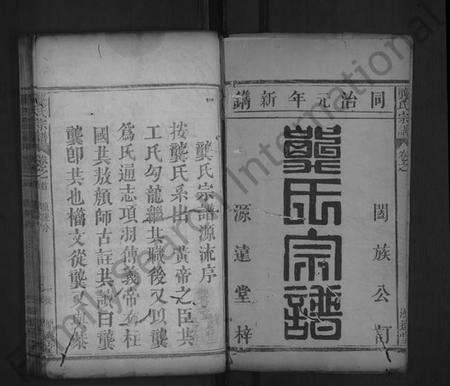 同治元年新鐫
闔族公訂
龔氏宗譜
源遠堂梓
龔氏宗譜
龔氏宗譜源流序
按龔氏系出黃帝之臣共
工氏勾龍繼其職後又以龔
為氏通志項羽傳義帝
柱國共敖顏師古註共讀曰龔
龔卽共也檔文從龔又
FamilySearch International